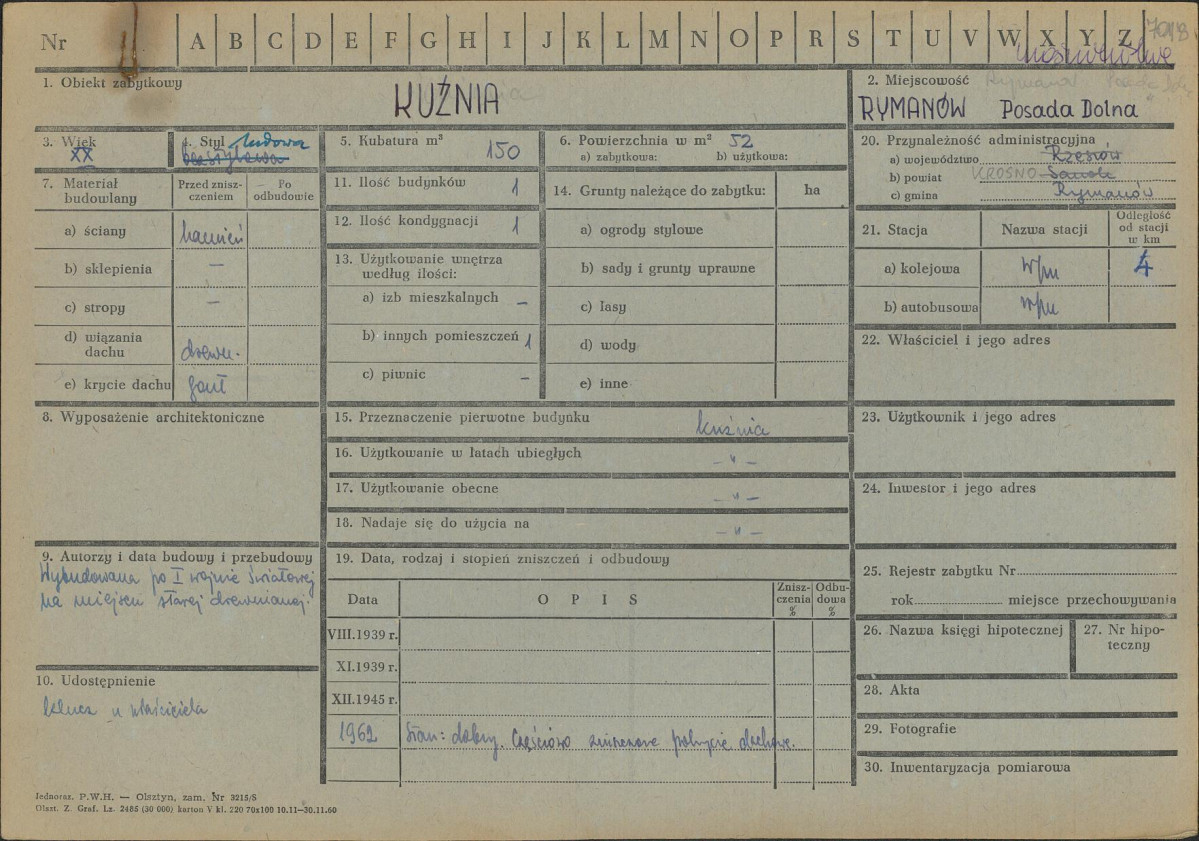 Nr A B C D E F G H I J K L M N O P R S T U V W X Y Z
1. Obiekt zabytkowy
KUŹNIA
2. Miejscowość
RYMANÓW Posada Dolna
3. Wiek
XX
4. Styl ludowa
5. Kubatura m³ 150
6. Powierzchnia w m² 52
a) zabytkowa: b) użytkowa:
7. Materiał budowlany
Przed znisz-
czeniem
Po
odbudowie
a) ściany kamień
b) sklepienia —
c) stropy —
d) wiązania
dachu drewn.
e) krycie dachu gont
8. Wyposażenie architektoniczne
9. Autorzy i data budowy i przebudowy
Wybudowana po I wojnie światowej
na miejscu starej drewnianej.
10. Udostępnienie
klucz u właściciela
11. Ilość budynków 1
12. Ilość kondygnacji 1
13. Użytkowanie wnętrza
według ilości:
a) izb mieszkalnych –
b) innych pomieszczeń 1
c) piwnic –
14. Grunty należące do zabytku: ha
a) ogrody stylowe
b) sady i grunty uprawne
c) lasy
d) wody
e) inne
15. Przeznaczenie pierwotne budynku kuźnia
16. Użytkowanie w latach ubiegłych – „ –
17. Użytkowanie obecne – „ –
18. Nadaje się do użycia na – „ –
19. Data, rodzaj i stopień zniszczeń i odbudowy
Data
O P I S
Znisz-
czenia
%
Odbu-
dowa
%
VIII.1939 r.
XI.1939 r.
XII.1945 r.
1962 Stan: dobry. Częściowo zniszczone pokrycie dachowe.
20. Przynależność administracyjna
a) województwo Rzeszów
b) powiat KROSNO Sanok
c) gmina Rymanów
21. Stacja
Nazwa stacji
Odległość
od stacji
w km
a) kolejowa 4
b) autobusowa
22. Właściciel i jego adres
23. Użytkownik i jego adres
24. Inwestor i jego adres
25. Rejestr zabytku Nr
rok miejsce przechowywania
26. Nazwa księgi hipotecznej
27. Nr hipo-
teczny
28. Akta
29. Fotografie
30. Inwentaryzacja pomiarowa
Jednoraz. P.W.H. — Olsztyn, zam. Nr 3215/S
Olszt. Z. Graf. Lz. 2485 (30 000) karton V kl. 220 70x100 10.11—30.11.60